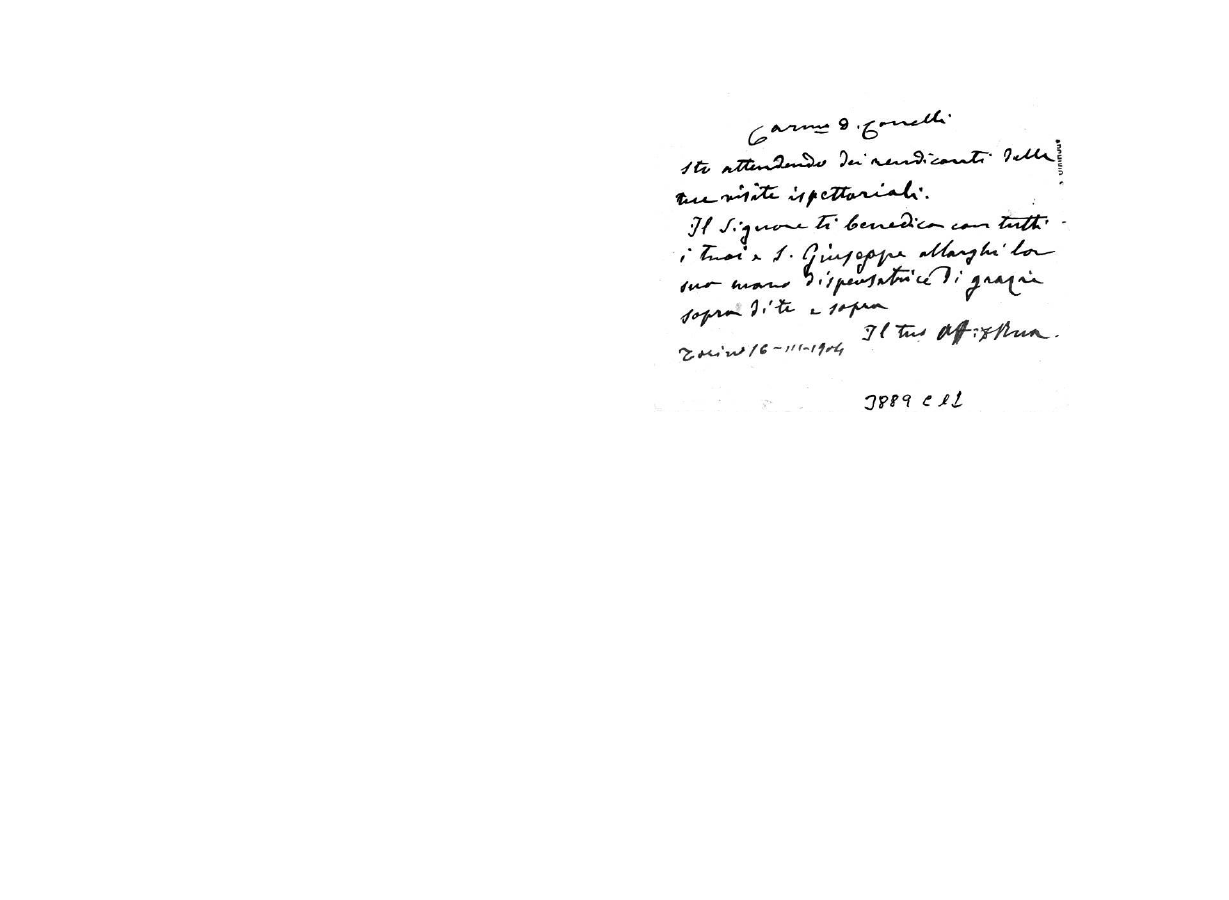 Car.mo D. Conelli
sto attendendo dei rendiconti delle
tue visite ispettoriali.
Il Signore ti benedica con tutti
i tuoi e S. Giuseppe allarghi la
sua mano dispensatrice di grazie
sopra di te e sopra
Il tuo aff. in X Rua.
Torino 16-III-1904
3889 C